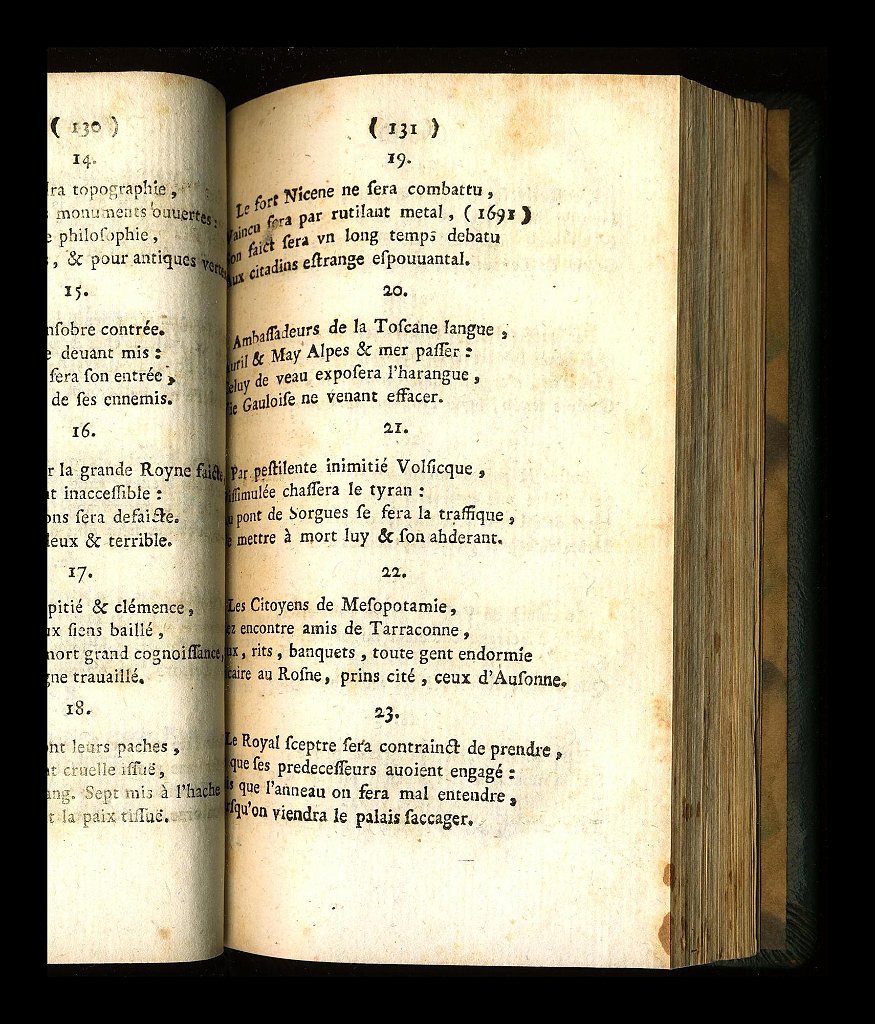 ( 130 )
14.
topographie,
monuments ouuertes:
philoſophie,
, & pour antiques vertes
15.
contrée.
deuant mis :
ſera ſon entrée,
de ſes ennemis.
16.
la grande Royne faicte,
inacceſſible :
ſera defaicte.
& terrible.
17.
pitié & clémence,
ſiens baillé,
grand cognoiſſance,
trauaillé.
18.
leurs paches,
cruelle iſſuë,
Sept mis à l'hache
la paix tiſſuë.
( 131 )
19.
Le fort Nicene ne ſera combattu,
Vaincu ſera par rutilant metal, (1691)
Son faict ſera vn long temps debatu
Aux citadins eſtrange eſpouuantal.
20.
Ambaſſadeurs de la Toſcane langue,
Auril & May Alpes & mer paſſer :
Celuy de veau expoſera l'harangue,
Vie Gauloiſe ne venant effacer.
21.
Par peſtilente inimitié Volſicque,
Diſſimulée chaſſera le tyran :
Au pont de Sorgues ſe fera la traffique,
De mettre à mort luy & ſon ahderant.
22.
Les Citoyens de Meſopotamie,
encontre amis de Tarraconne,
rits, banquets, toute gent endormie
au Roſne, prins cité, ceux d'Auſonne.
23.
Le Royal ſceptre ſera contrainct de prendre,
que ſes predeceſſeurs auoient engagé :
que l'anneau on fera mal entendre,
viendra le palais ſaccager.